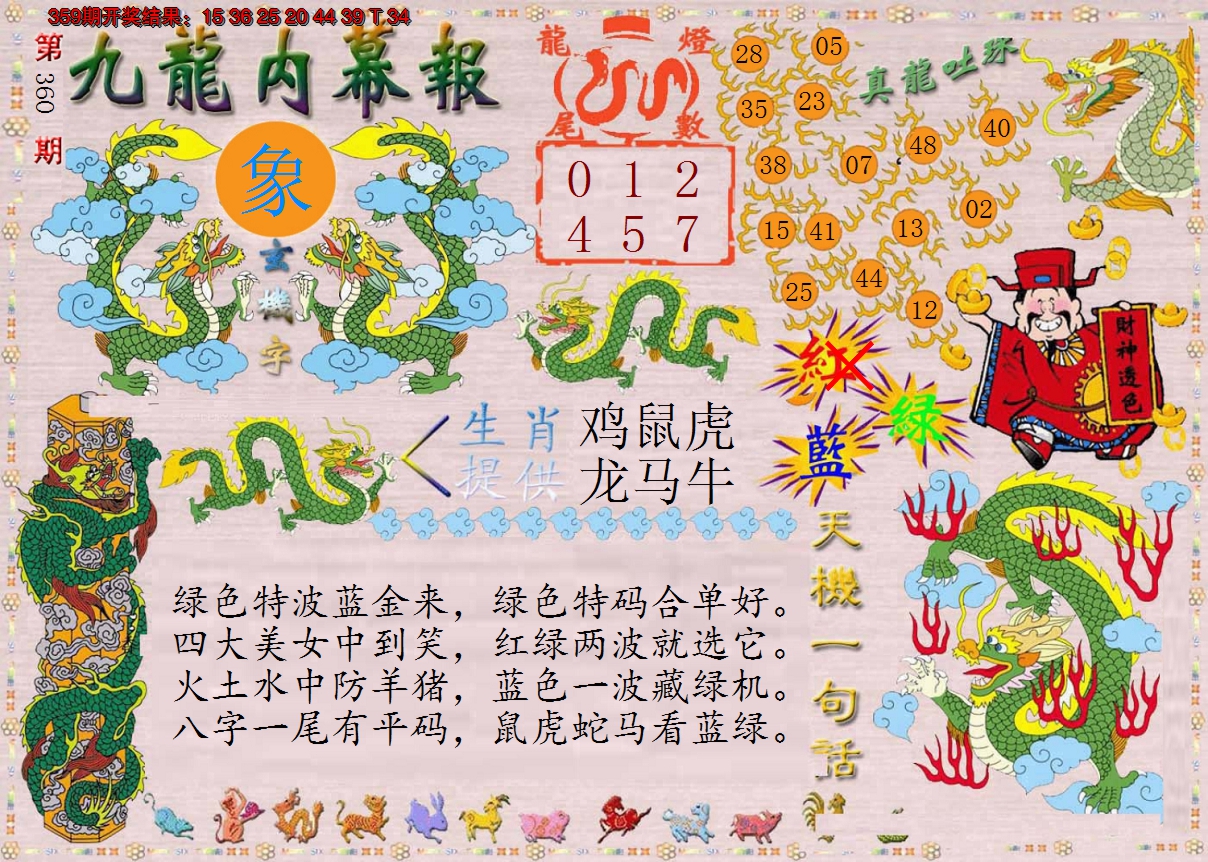 359期开奖结果：15 36 25 20 44 39 T 34
第360期
九龍内幕報
象
玄機字
龍燈
尾數
0 1 2
4 5 7
真龍吐珠
28 05
35 23
48 40
38 07
15 41 13 02
25 44 12
紅
綠
藍
財神透色
生肖 鸡鼠虎
提供 龙马牛
天機一句話
绿色特波蓝金来，绿色特码合单好。
四大美女中到笑，红绿两波就选它。
火土水中防羊猪，蓝色一波藏绿机。
八字一尾有平码，鼠虎蛇马看蓝绿。